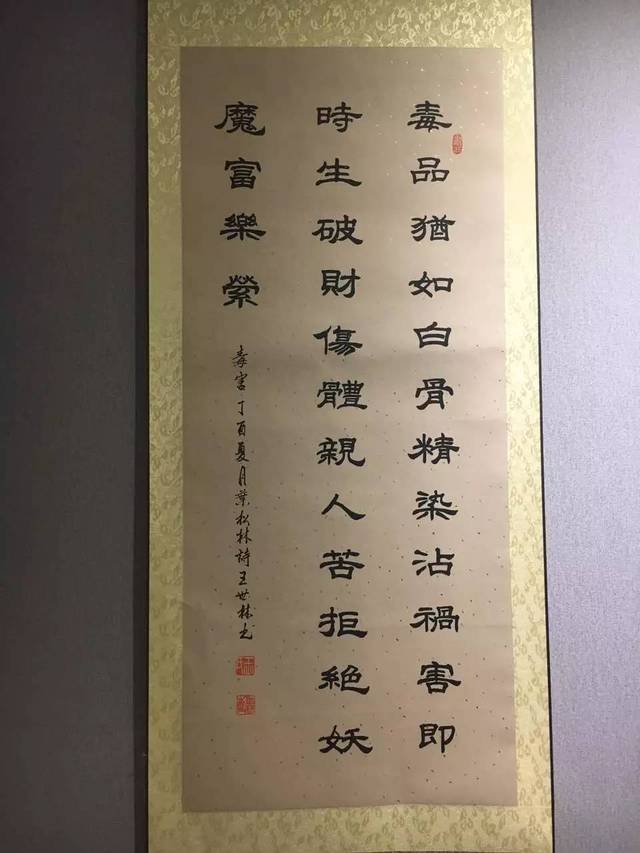 毒品猶如白骨精染沾禍害即
時生破財傷體親人苦拒絕妖
魔富樂縈
毒害丁酉夏月葉松林詩王世林书